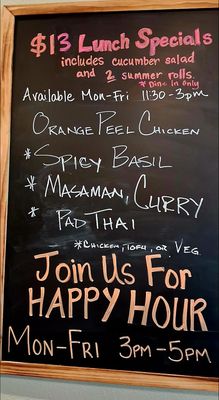 $13 Lunch Specials
includes cucumber salad
and 2 summer rolls.
* Dine in Only
Available Mon-Fri 11:30-3pm
Orange Peel Chicken
* Spicy Basil
* Masaman Curry
* Pad Thai
* Chicken, Tofu, or Veg.
Join Us For
Happy Hour
Mon-Fri 3pm-5pm